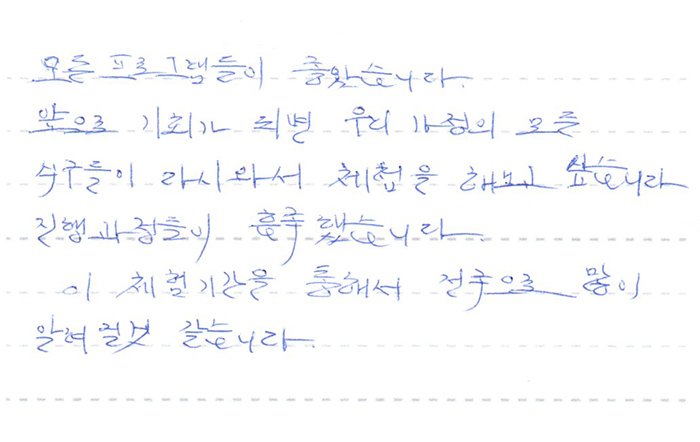 모든 프로그램들이 좋았습니다.
앞으로 기회가 되변 우리 가정의 모든
식구들이 다시와서 체험을 해보고 싶습니다
진행과정들이 흡족했습니다.
이 체험기간을 통해서 전국으로 많이
알려질것 같습니다.